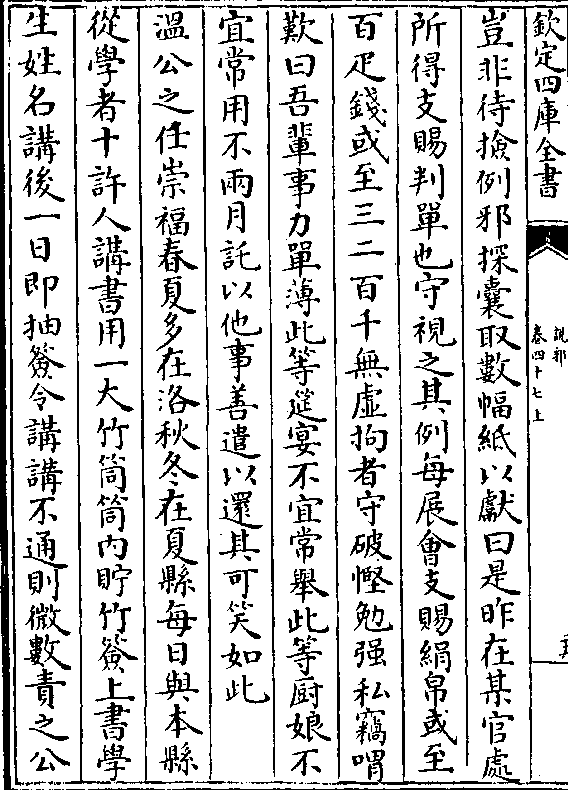 欽定四庫全書
說郛
卷四十七上
豈非待撿例邪探囊取數幅紙以獻曰是昨在某官處
所得支賜判單也守視之其例每展會支賜絹帛或至
百疋錢或至三二百千無虛拘者守破慳勉强私竊喟
歎曰吾輩事力單薄此等筵宴不宜常舉此等厨娘不
宜常用不兩月託以他事善遣以還其可笑如此
溫公之任崇福春夏多在洛秋冬在夏縣每日與本縣
從學者十許人講書用一大竹筒筒內貯竹簽上書學
生姓名講後一日即抽簽令講講不通則微數責之公